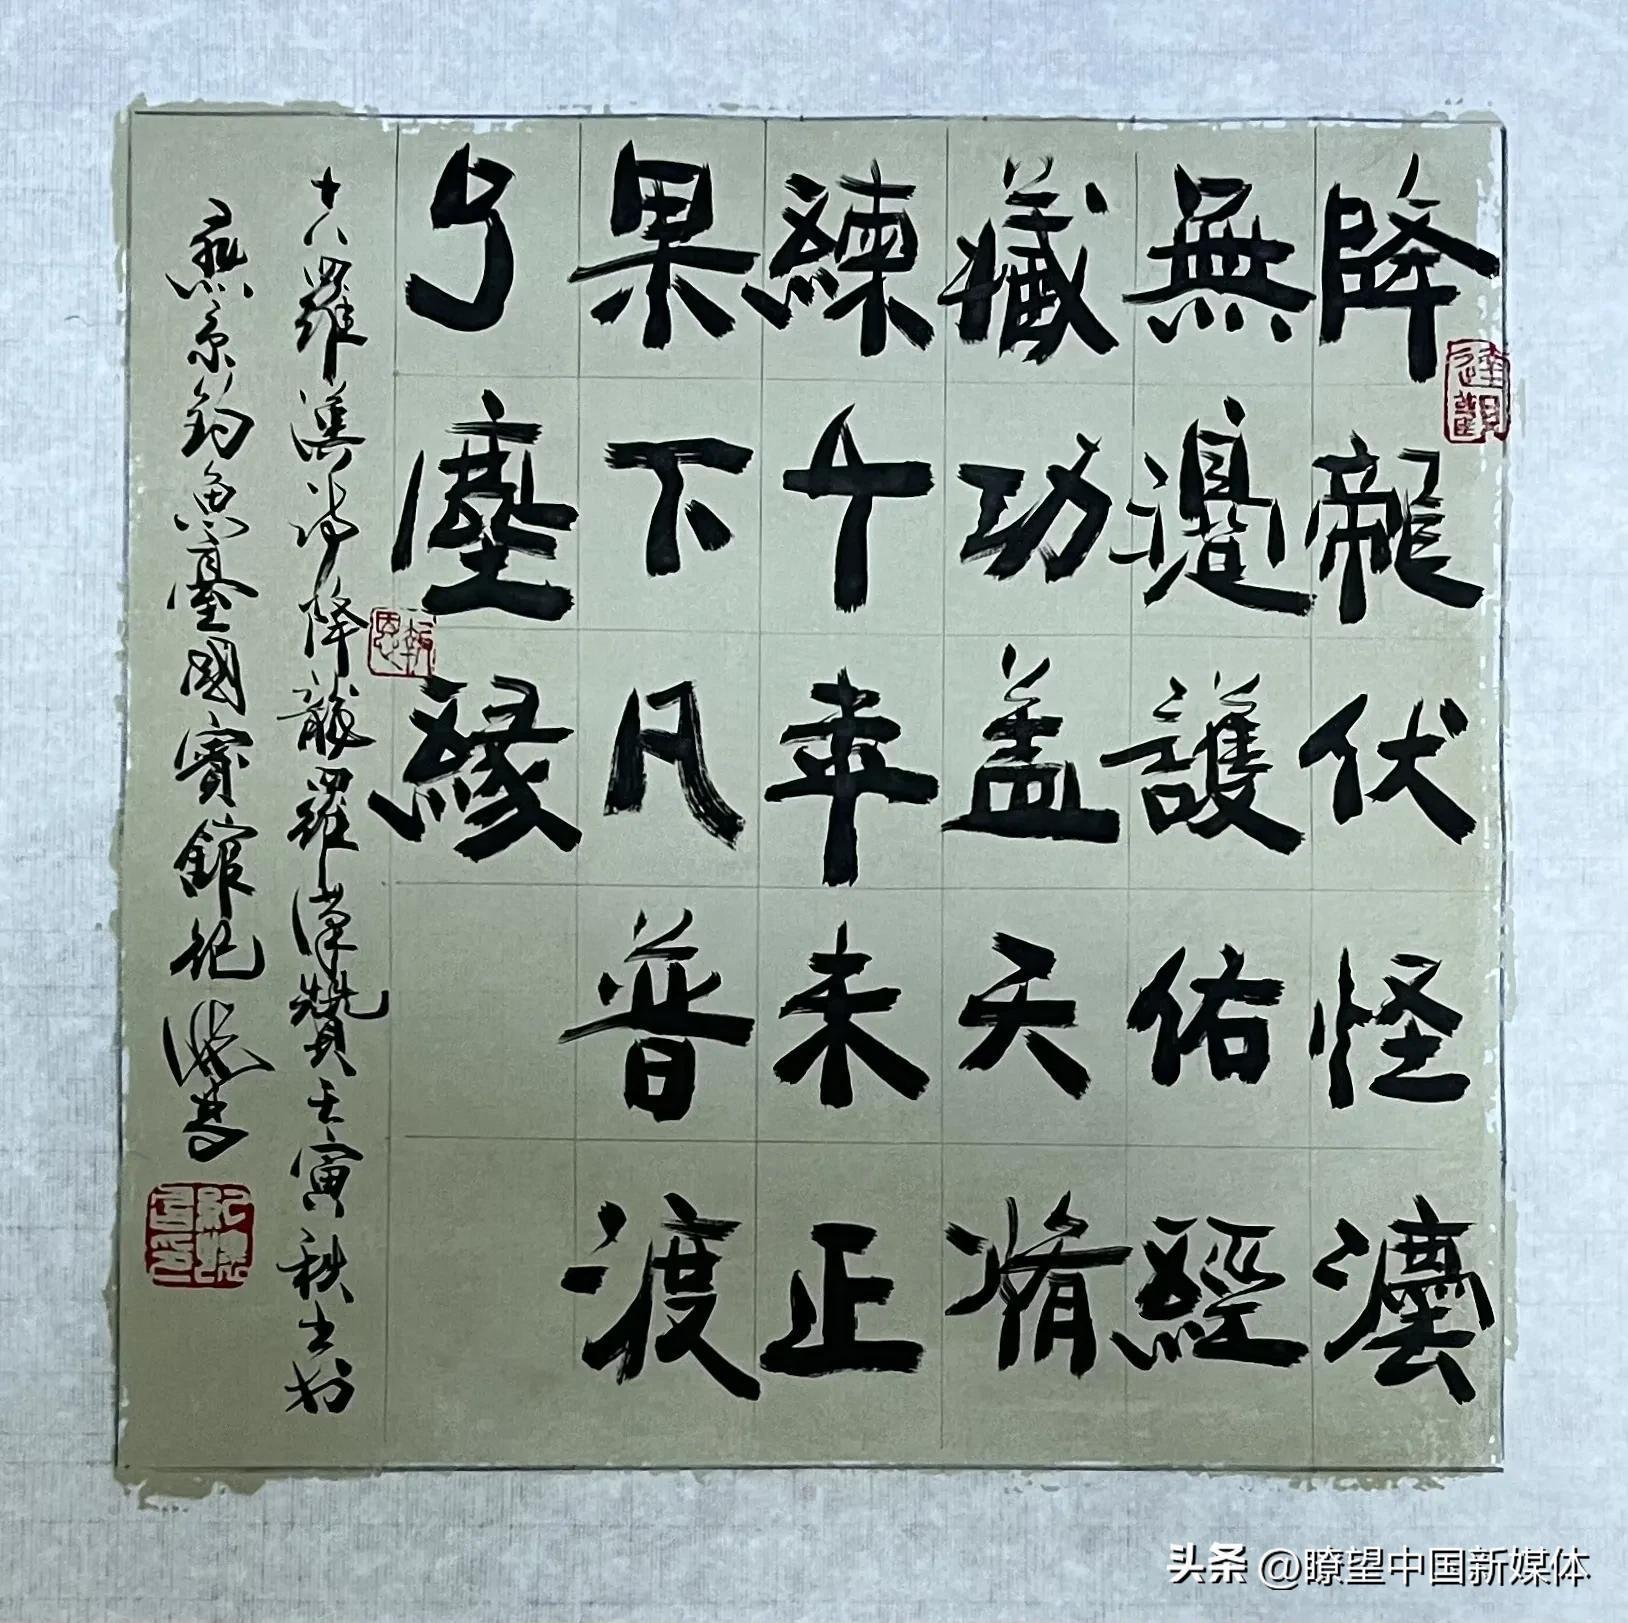 降龍伏怪灋
無邊護佑經
藏功盖天脩
練千年未正
果下凡普渡
了塵緣
十八羅漢詩降龍羅漢贊壬寅秋書於
燕京釣魚臺國賓館紀
報恩
头条 @瞭望中国新媒体